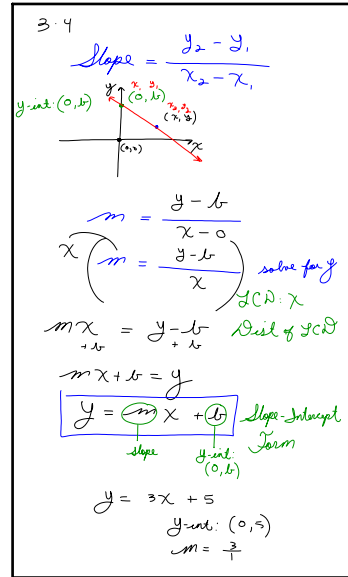 3.4
Slope = y₂ - y₁ / x₂ - x₁
y
x₁ y₁
y-int: (0, b) (0, b)
x₂, y₂
(x, y)
x
m = y - b / x - 0
x ( m = y - b / x ) solve for y
LCD: x
mx = y - b Dist of LCD
+b + b
mx + b = y
y = m x + b Slope-Intercept
Form
slope y-int:
(0, b)
y = 3x + 5
y-int: (0, 5)
m = 3/1